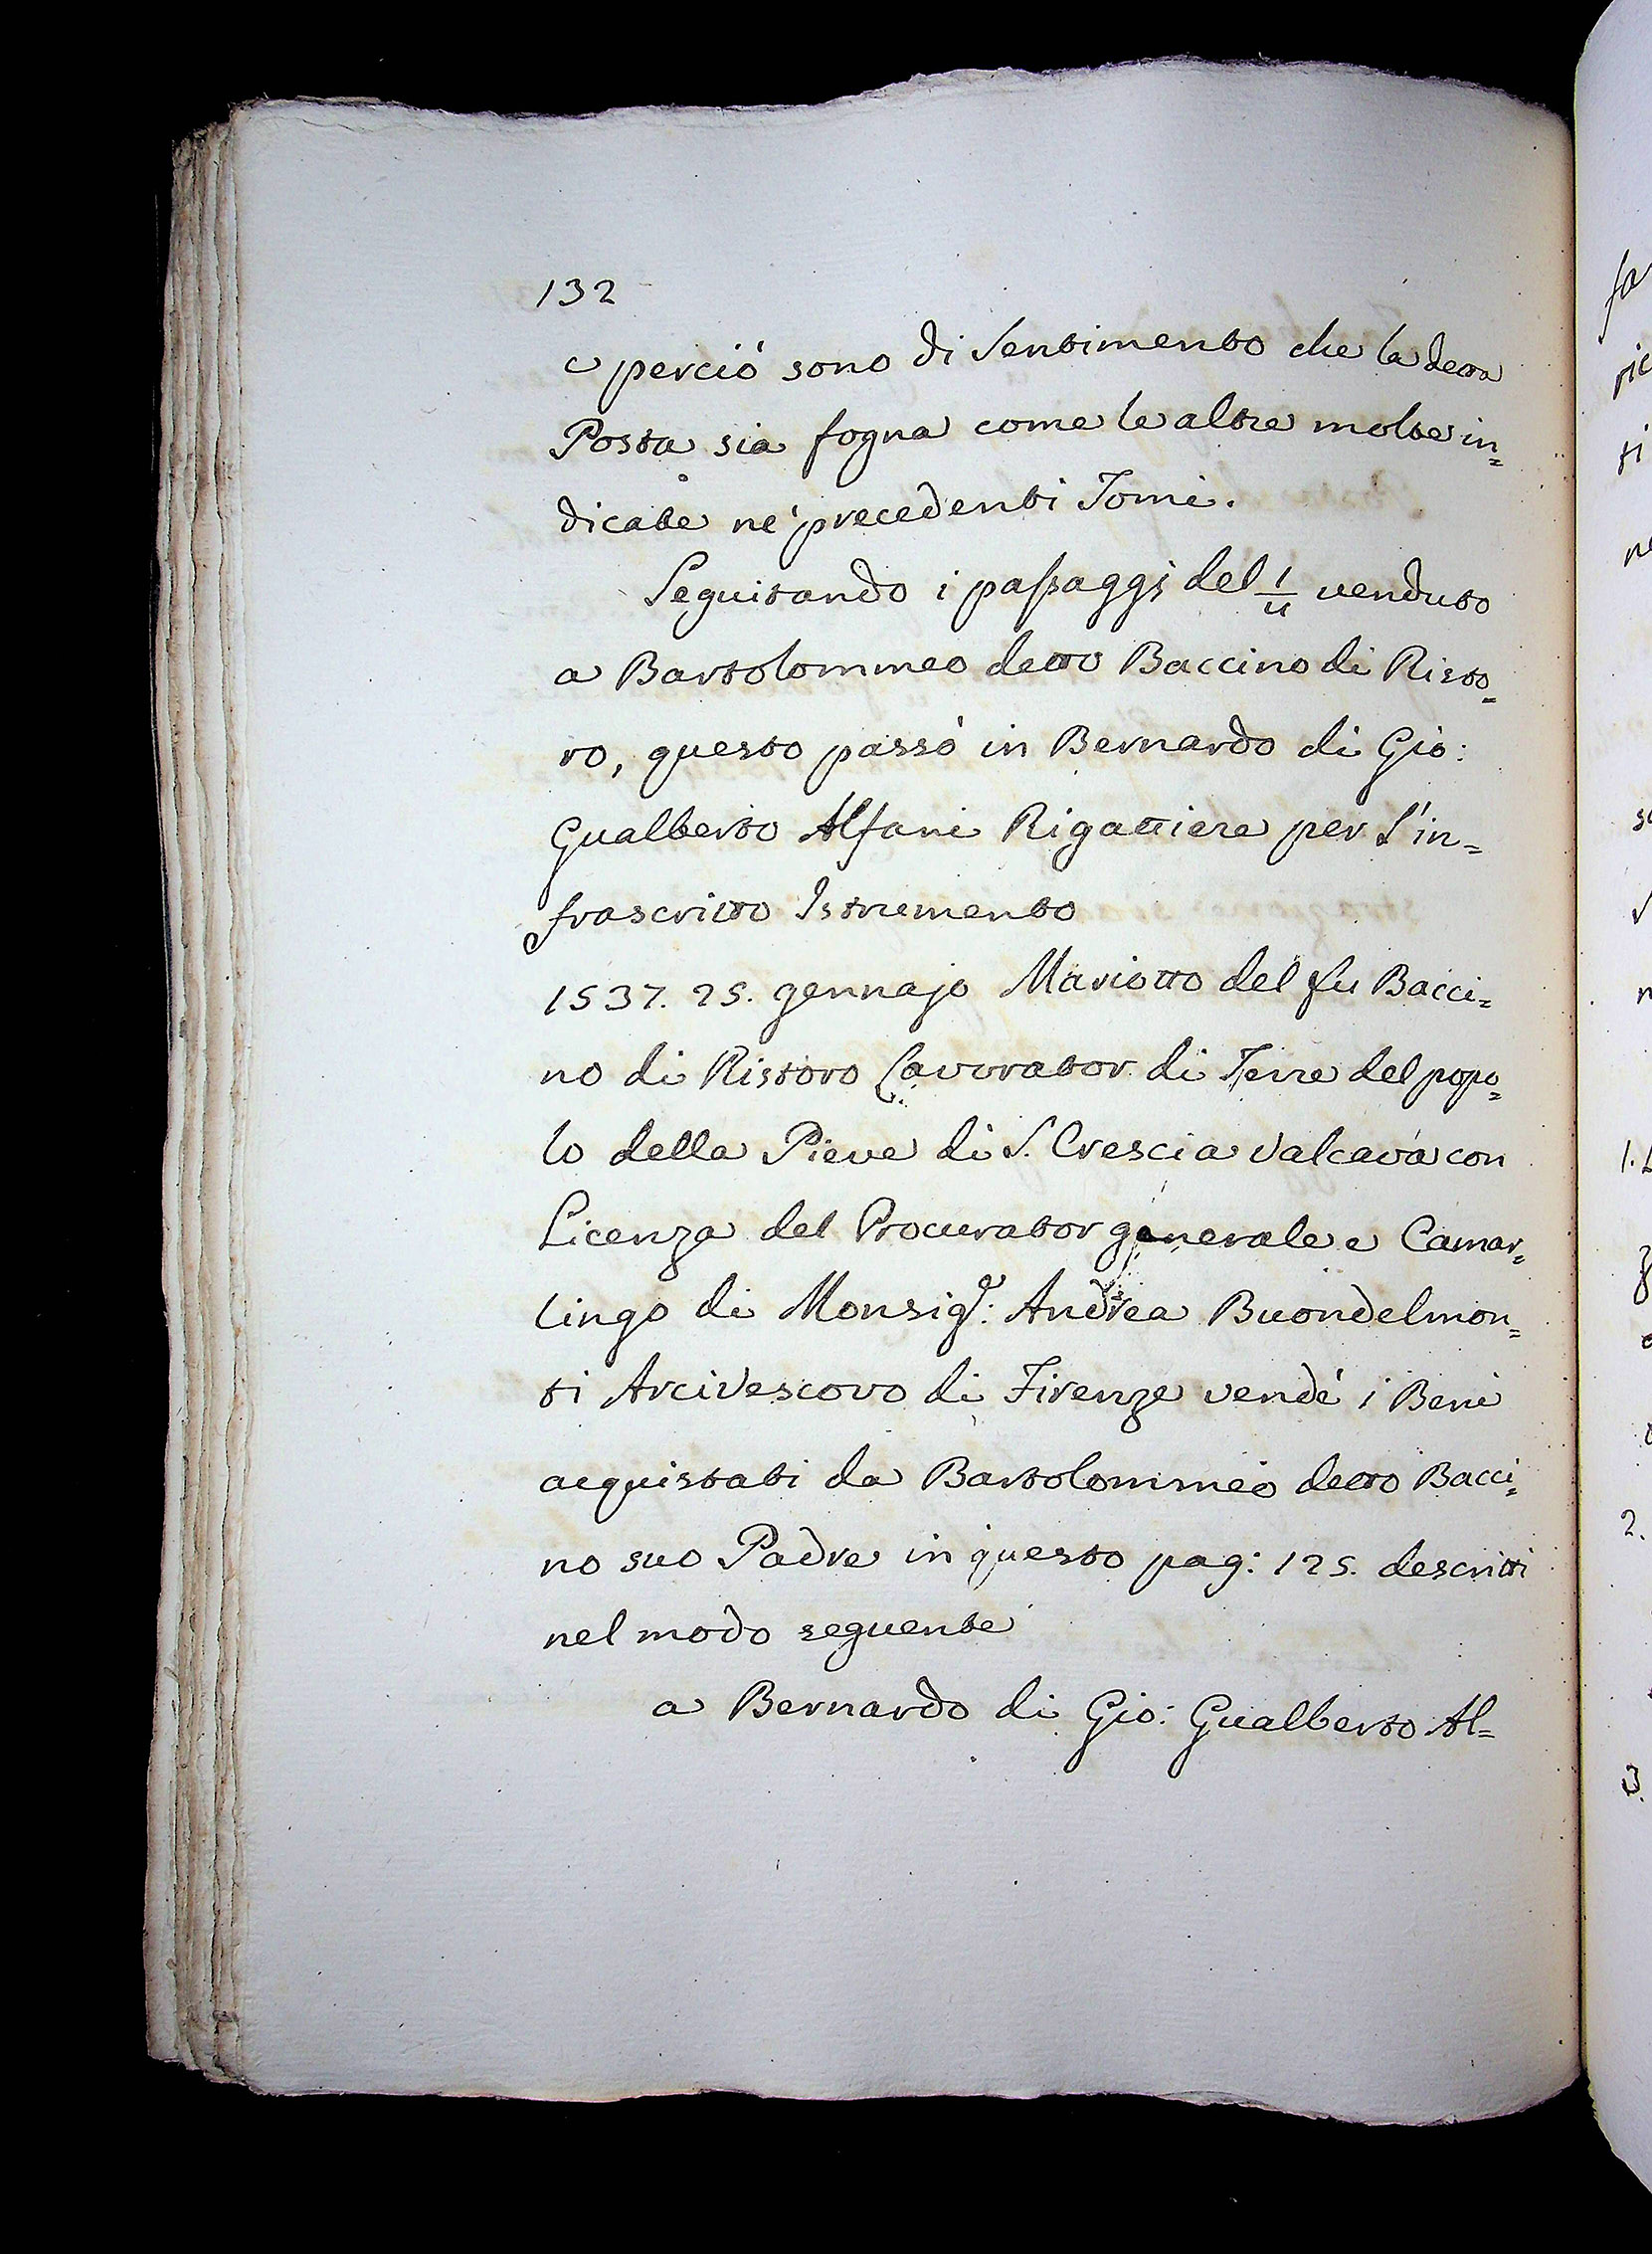 132
e perciò sono di Sentimento che la detta
Posta sia fogna come le altre molte in=
dicate ne' precedenti Tomi.
Seguitando i passaggi del 1/11 venduto
a Bartolommeo detto Baccino di Risto=
ro, questo passò in Bernardo di Gio:
Gualberto Alfani Rigattiere per l'in=
frascritto Istrumento
1537. 25. gennajo Mariotto del fu Bacci=
no di Ristoro Lavorator di Terre del popo=
lo della Pieve di S. Crescia Valcava con
Licenza del Procurator generale e Camar=
lingo di Monsigr: Andrea Buondelmon=
ti Arcivescovo di Firenze vendé i Beni
acquistati da Bartolommeo detto Bacci=
no suo Padre in questo pag: 125. descritti
nel modo seguente
a Bernardo di Gio: Gualberto Al=